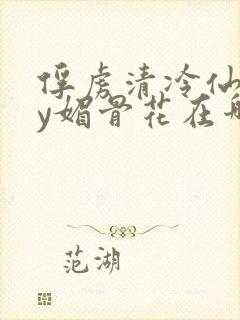 俘虏清冷仙
y媚骨花在
范湖